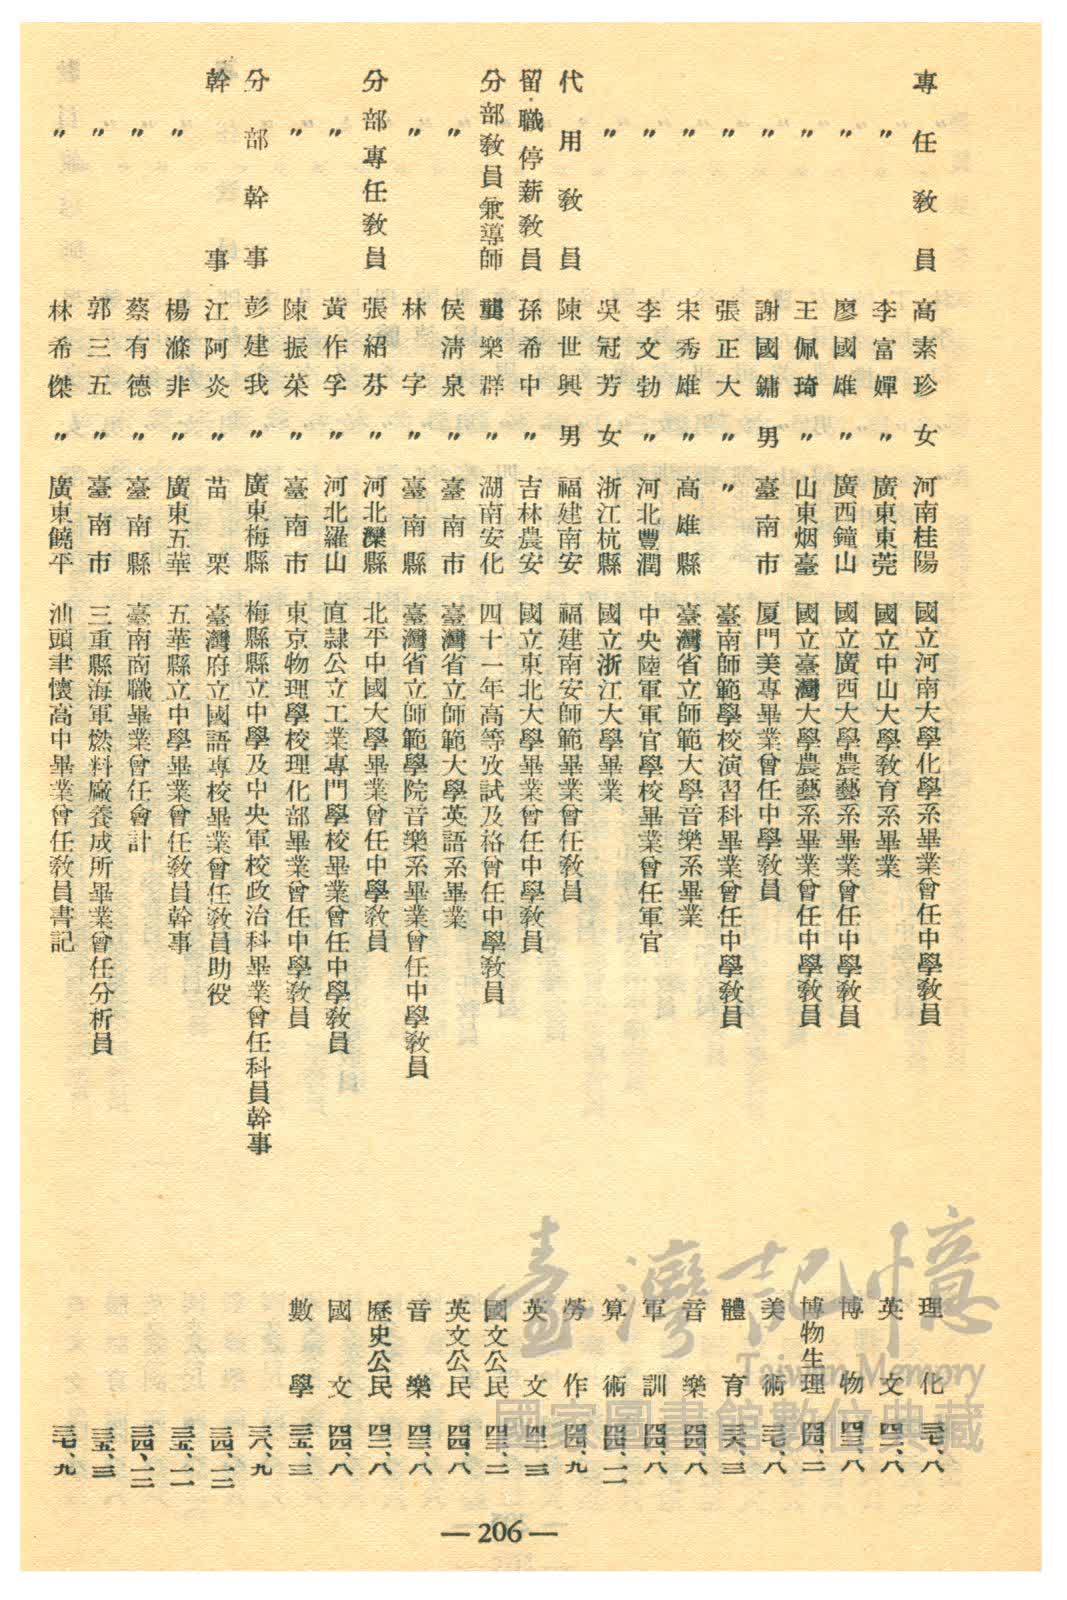 專任教員 高素珍 女 河南桂陽 國立河南大學化學系畢業曾任中學教員 理化 三七、八
〃 李富嬋 〃 廣東東莞 國立中山大學教育系畢業 英文 四一、八
〃 廖國雄 〃 廣西鐘山 國立廣西大學農藝系畢業曾任中學教員 博物 四三、八
〃 王佩琦 〃 山東烟臺 國立臺灣大學農藝系畢業曾任中學教員 博物生理 四四、二
〃 謝國鏞 男 臺南市 厦門美專畢業曾任中學教員 美術 三七、八
〃 張正大 〃 〃 臺南師範學校演習科畢業曾任中學教員 體育 三六、三
〃 宋秀雄 〃 高雄縣 臺灣省立師範大學音樂系畢業 音樂 四四、八
〃 李文勃 〃 河北豐潤 中央陸軍軍官學校畢業曾任軍官 軍訓 四四、八
〃 吳冠芳 女 浙江杭縣 國立浙江大學畢業 算術 四四、一一
代用教員 陳世興 男 福建南安 福建南安師範畢業曾任教員 勞作 四四、九
留職停薪教員 孫希中 〃 吉林農安 國立東北大學畢業曾任中學教員 英文 四二、三
分部教員兼導師 龔樂群 〃 湖南安化 四十一年高等攷試及格曾任中學教員 國文公民 四三、二
〃 侯淸泉 〃 臺南市 臺灣省立師範大學英語系畢業 英文公民 四四、八
〃 林字 〃 臺南縣 臺灣省立師範學院音樂系畢業曾任中學教員 音樂 四三、八
分部專任教員 張紹芬 〃 河北灤縣 北平中國大學畢業曾任中學教員 歷史公民 四二、八
〃 黃作孚 〃 河北羅山 直隷公立工業專門學校畢業曾任中學教員 國文 四四、八
〃 陳振棻 〃 臺南市 東京物理學校理化部畢業曾任中學教員 數學 三五、三
分部幹事 彭建我 〃 廣東梅縣 梅縣縣立中學及中央軍校政治科畢業曾任科員幹事 三八、九
幹事 江阿炎 〃 苗栗 臺灣府立國語專校畢業曾任教員助役 三四、一二
〃 楊滌非 〃 廣東五華 五華縣立中學畢業曾任教員幹事 三五、一一
〃 蔡有德 〃 臺南縣 臺南商職畢業曾任會計 三四、一二
〃 郭三五 〃 臺南市 三重縣海軍燃料廠養成所畢業曾任分析員 三五、三
〃 林希傑 〃 廣東饒平 汕頭聿懷高中畢業曾任教員書記 三七、九
—206—
臺灣記憶
Taiwan Memory
國家圖書館數位典藏